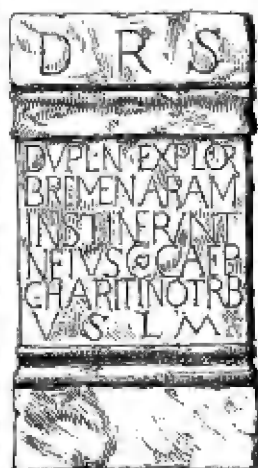 D R S
DVPL N EXPLOR
BREMEN ARAM
INSTITVERVNT
N EIVS C CAEP
CHARITINO TRB
V S L M